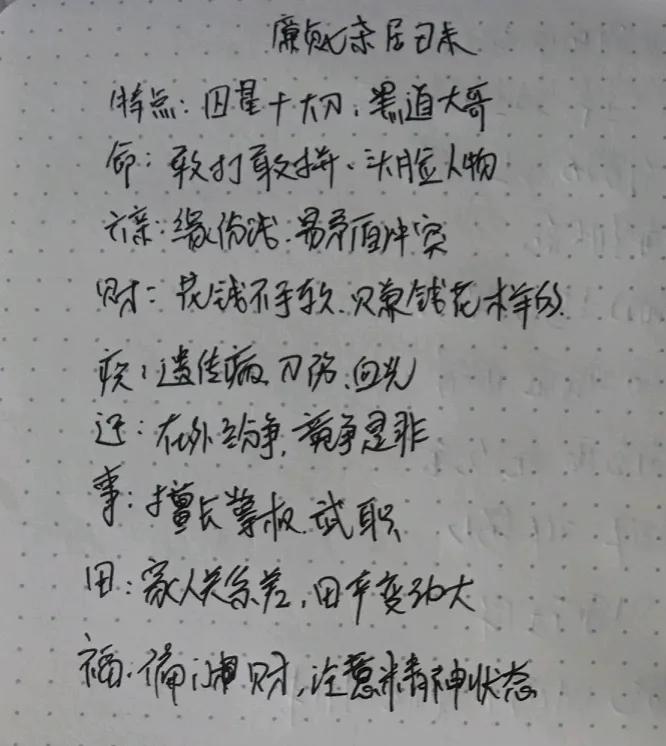 廉贞七杀居丑未
特点：囚星+大刀、黑道大哥
命：敢打敢拼、头脸人物
六亲：缘份浅、易矛盾冲突
财：花钱不手软、只兼钱花样的
疾：遗传病、刀伤、血光
迁：在外纷争，竞争是非
事：擅长掌权、武职
田：家人关系差，田宅变动大
福：偏门财，注意精神状态